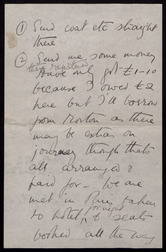 ① Send coat etc straight
there
② Send me some money
this morning
have only got £1-10
because I owed £2
here but I'll borrow
from Morton as there
may be extras on
journey though that's
all arranged &
paid for - we are
met in
to hotel, & seats
booked all the way